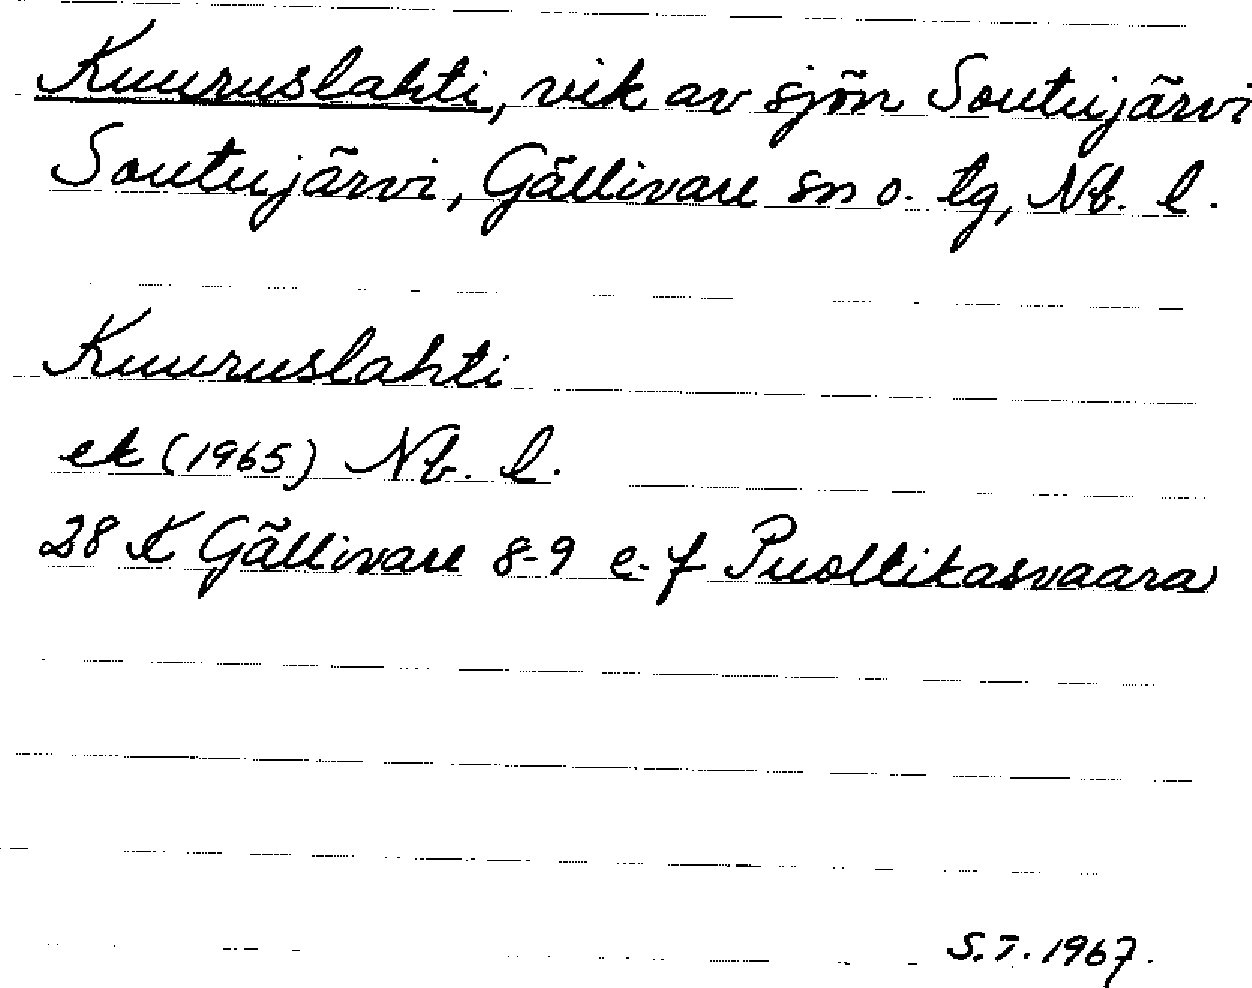 Kuuruslahti, vik av sjön Soutujärvi
Soutujärvi, Gällivare sn o. lg, Nb. l.
Kuuruslahti
ek (1965) Nb. l.
28 K Gällivare 8-9 e-f Puoltikasvaara
S.T. 1967.